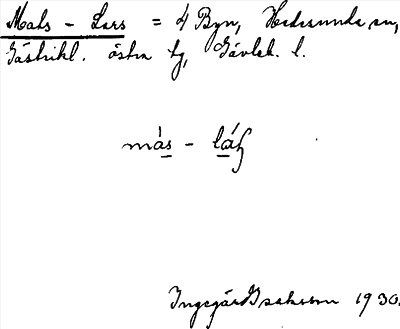 Mats - Lars = 4 Byn, Hedesunda sn,
Gästrikl. östra tg, Gävleb. l.
más - láʃ
Ingegärd Isaksson 1930.